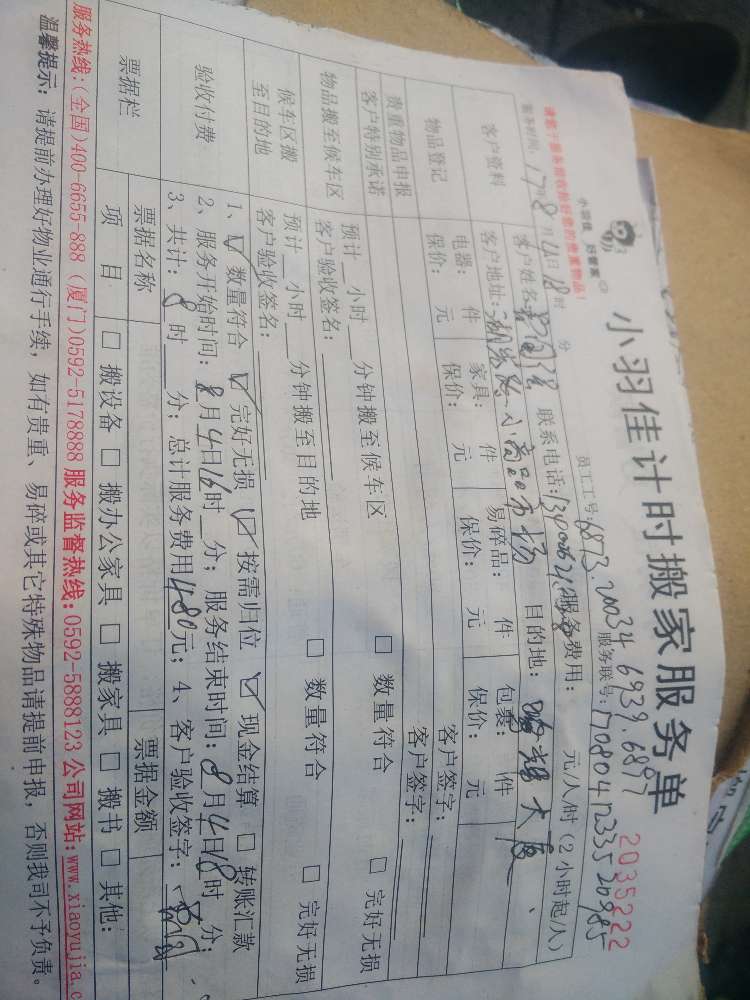 小羽佳 好管家
小羽佳计时搬家服务单
2035222
请客户服务前收拾好您的贵重物品!
员工工号:6873.20034 6939.6897
服务时间:17年8月4日18时 分
服务联号:
客户资料
客户姓名: 联系电话: 服务费用: 元/人/时(2小时起/人)
客户地址: 小商品市场 目的地: 大厦
物品登记
电器: 件 家具: 件 易碎品: 件 包裹: 件
保价: 元 保价: 元 保价: 元 保价: 元
贵重物品申报 客户签字:
客户特别承诺 客户签字:
物品搬至候车区
预计__小时__分钟搬至候车区 □ 数量符合 □ 完好无损
客户验收签名:
候车区搬至目的地
预计__小时__分钟搬至目的地 □ 数量符合 □ 完好无损
客户验收签名:
验收付费
1、☑ 数量符合 ☑ 完好无损 ☑ 按需归位 ☑ 现金结算 □ 转账汇款
2、服务开始时间:8月4日16时__分;服务结束时间:8月4日18时__分;
3、共计:8时__分;总计服务费用480元;4、客户验收签字:
票据栏
票据名称 票据金额
项目 □ 搬设备 □ 搬办公家具 □ 搬家具 □ 搬书 □ 其他:
服务热线:(全国)400-6655-888 (厦门)0592-5178888 服务监督热线:0592-5888123 公司网站:www.xiaoyujia.c
温馨提示:请提前办理好物业通行手续,如有贵重、易碎或其它特殊物品请提前申报,否则我司不予负责。